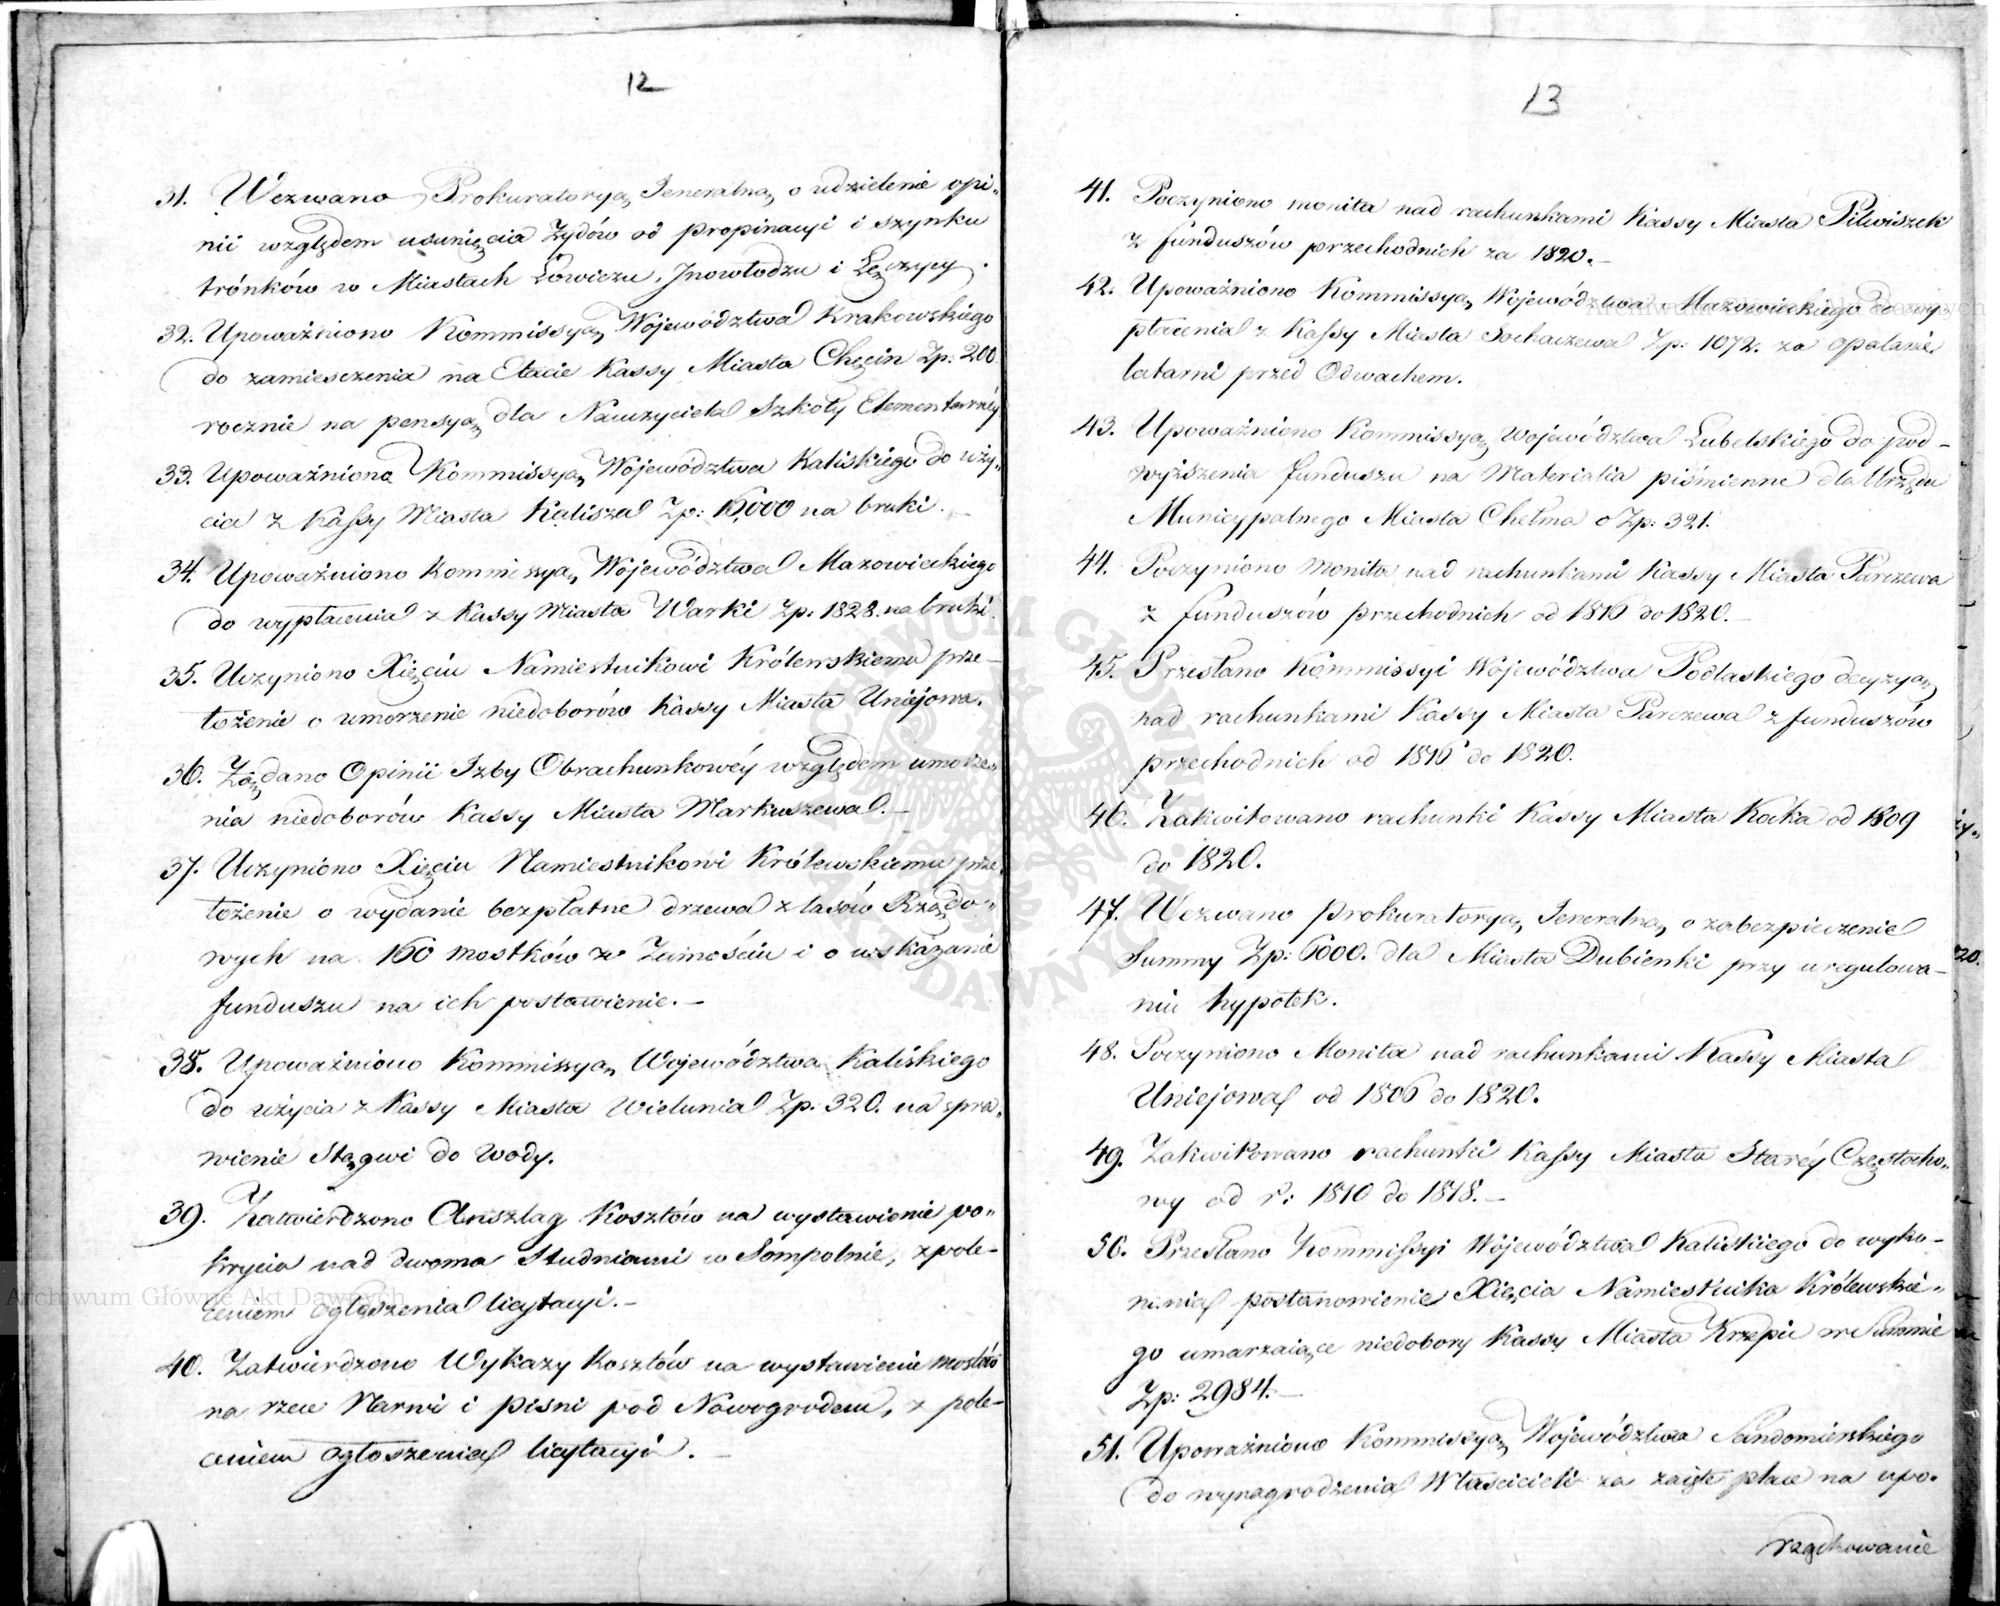 12
31. Wezwano Prokuratoryą Jeneralną o udzielenie opi„
nii względem usunięcia Żydów od propinacyi i szynku
trónków w Miastach Łowiczu, Jnowłodzu i Łęczycy.
32. Upoważniono Kommissyą Województwa Krakowskiego
do zamiesczenia na Etacie Kassy Miasta Chęcin Zp: 200
rocznie na pensyą dla Nauczyciela Szkoły Elementarnéy
33. Upoważniono Kommissyą Województwa Kaliskiego do uży„
cia z Kassy Miasta Kalisza Zp: 16,000 na bruki.
34. Upoważniono Kommissyą Województwa Mazowieckiego
do wypłacenia z Kassy Miasta Warki Zp: 1828. na bruki.
35. Uczyniono Xięciu Namiestnikowi Królewskiemu prze-
łożenie o umorzenie niedoborów Kassy Miasta Uniejowa.
36. Żądano Opinii Izby Obrachunkowéy względem umorze„
nia niedoborów Kassy Miasta Markuszewa.—
37. Uczyniono Xięciu Namiestnikowi Królewskiemu prze„
łożenie o wydanie bezpłatne drzewa z lasów Rządo„
wych na 160 mostków w Zamościu i o wskazanie
funduszu na ich postawienie.—
38. Upoważniono Kommissyą Województwa Kaliskiego
do użycia z Kassy Miasta Wielunia Zp: 320. na spra„
wienie Stągwi do wody.
39. Zatwierdzono Anszlag Kosztów na wystawienie po„
krycia nad dwoma Studniami w Sompolnie, z pole-
ceniem ogłoszenia licytacyi.—
40. Zatwierdzono Wykazy Kosztów na wystawienie mostów
na rzece Narwi i Pisni pod Nowogrodem, z pole-
ceniem ogłoszenia licytacyi.—
13
41. Poczyniono monita nad rachunkami Kassy Miasta Pilwiszek
z funduszów przechodnich za 1820.—
42. Upoważniono Kommissyą Województwa Mazowieckiego do wy„
płacenia z Kassy Miasta Sochaczewa Zp: 1072. za opalanie
latarni przed Odwachem.
43. Upoważniono Kommissyą Województwa Lubelskiego do pod-
wyższenia funduszu na Materialia piśmienne dla Urzędu
Municypalnego Miasta Chełma o Zp: 321.
44. Poczyniono monita nad rachunkami Kassy Miasta Parczewa
z funduszów przechodnich od 1816 do 1820.—
45. Przesłano Kommissyi Województwa Podlaskiego decyzyą
nad rachunkami Kassy Miasta Parczewa z funduszów
przechodnich od 1816 do 1820.
46. Zakwitowano rachunki Kassy Miasta Kocka od 1809
do 1820.
47. Wezwano Prokuratoryą Jeneralną o zabezpieczenie
Summy Zp: 6000. dla Miasta Dubienki przy uregulowa-
niu hypotek.
48. Poczyniono Monita nad rachunkami Kassy Miasta
Uniejowa od 1806 do 1820.
49. Zakwitowano rachunki Kassy Miasta Staréy Częstocho„
wy od r: 1810 do 1818.—
50. Przesłano Kommissyi Województwa Kaliskiego do wyko-
nania postanowienie Xięcia Namiestnika Królewskie„
go umarzaiące niedobory Kassy Miasta Krzepic w Summie
Zp: 2984.—
51. Upoważniono Kommissyą Województwa Sandomierskiego
do wynagrodzenia Właścicieli za zaięte place na upo„
rządkowanie
Archiwum Główne Akt Dawnych
Archiwum Główne Akt Dawnych
ARCHIWUM GŁÓWNE AKT DAWNYCH